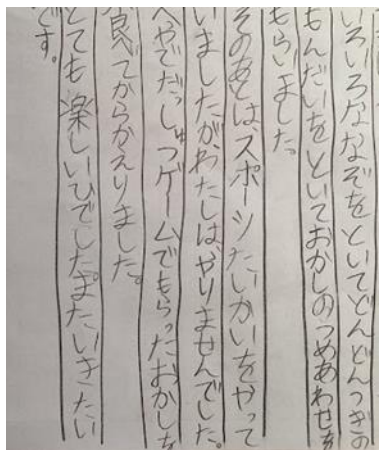 いろいろななぞをといてどんどんつぎの
もんだいをといておかしのつめあわせを
もらいました。
そのあとは、スポーツたいかいをやって
いましたがわたしは、やりませんでした。
へやでだっしゅつゲームでもらったおかしを
食べてからかえりました。
とても楽しいひでした。またいきたい
です。